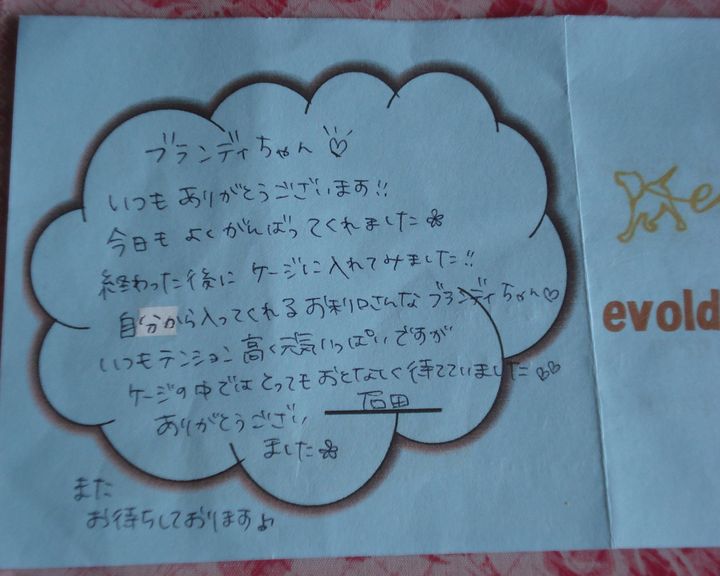 ブランディちゃん♡
いつもありがとうございます!!
今日もよくがんばってくれました
終わった後にケージに入れてみました!!
自分から入ってくれるお利口さんなブランディちゃん♡
いつもテンション高く元気いっぱいですが
ケージの中ではとってもおとなしく待てていました♡♡
ありがとうござい
ました
石田
また
お待ちしております♪
evold